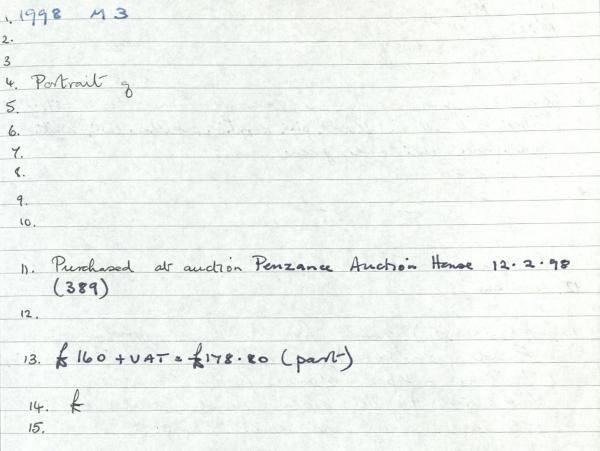 1. 1998 M 3
2.
3
4. Portrait of
5.
6.
7.
8.
9.
10.
11. Purchased at auction Penzance Auction House 12.2.98
(389)
12.
13. £160 + VAT = £178.80 (part)
14. £
15.